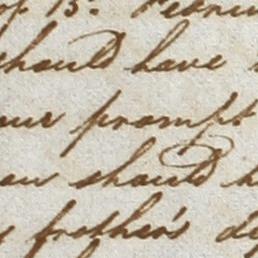 of 13. Februa
should have
our prompt
ou should h
brother's de